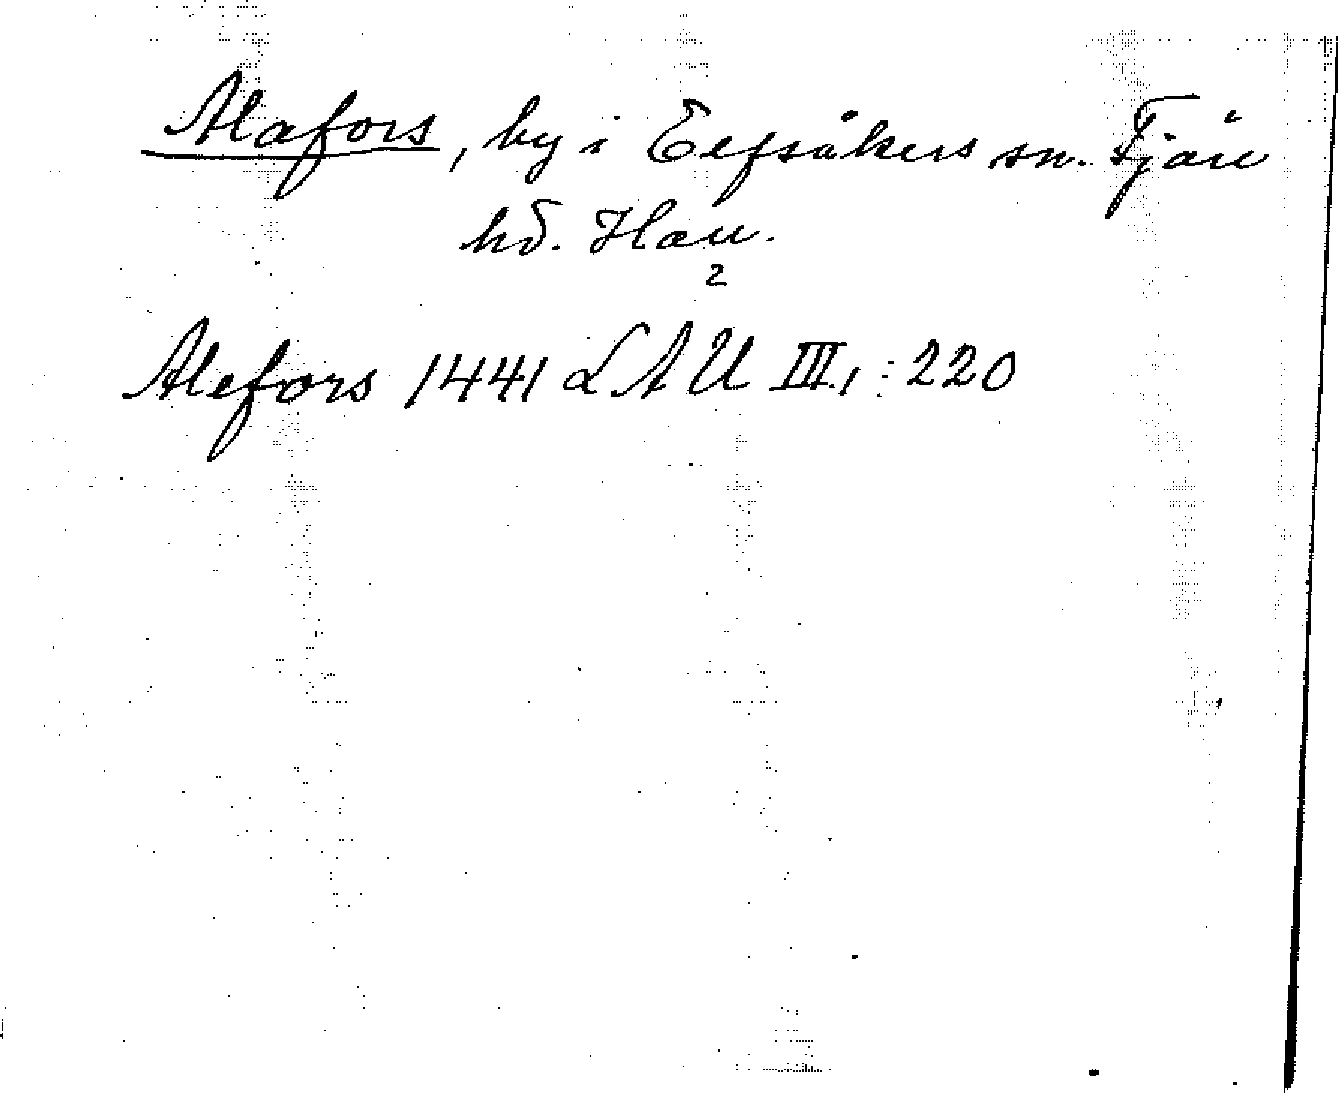 Alafors, by i Eefsåkers sn. Fjäre
hd. Hall.
2
Alefors 1441 LAU III, : 220